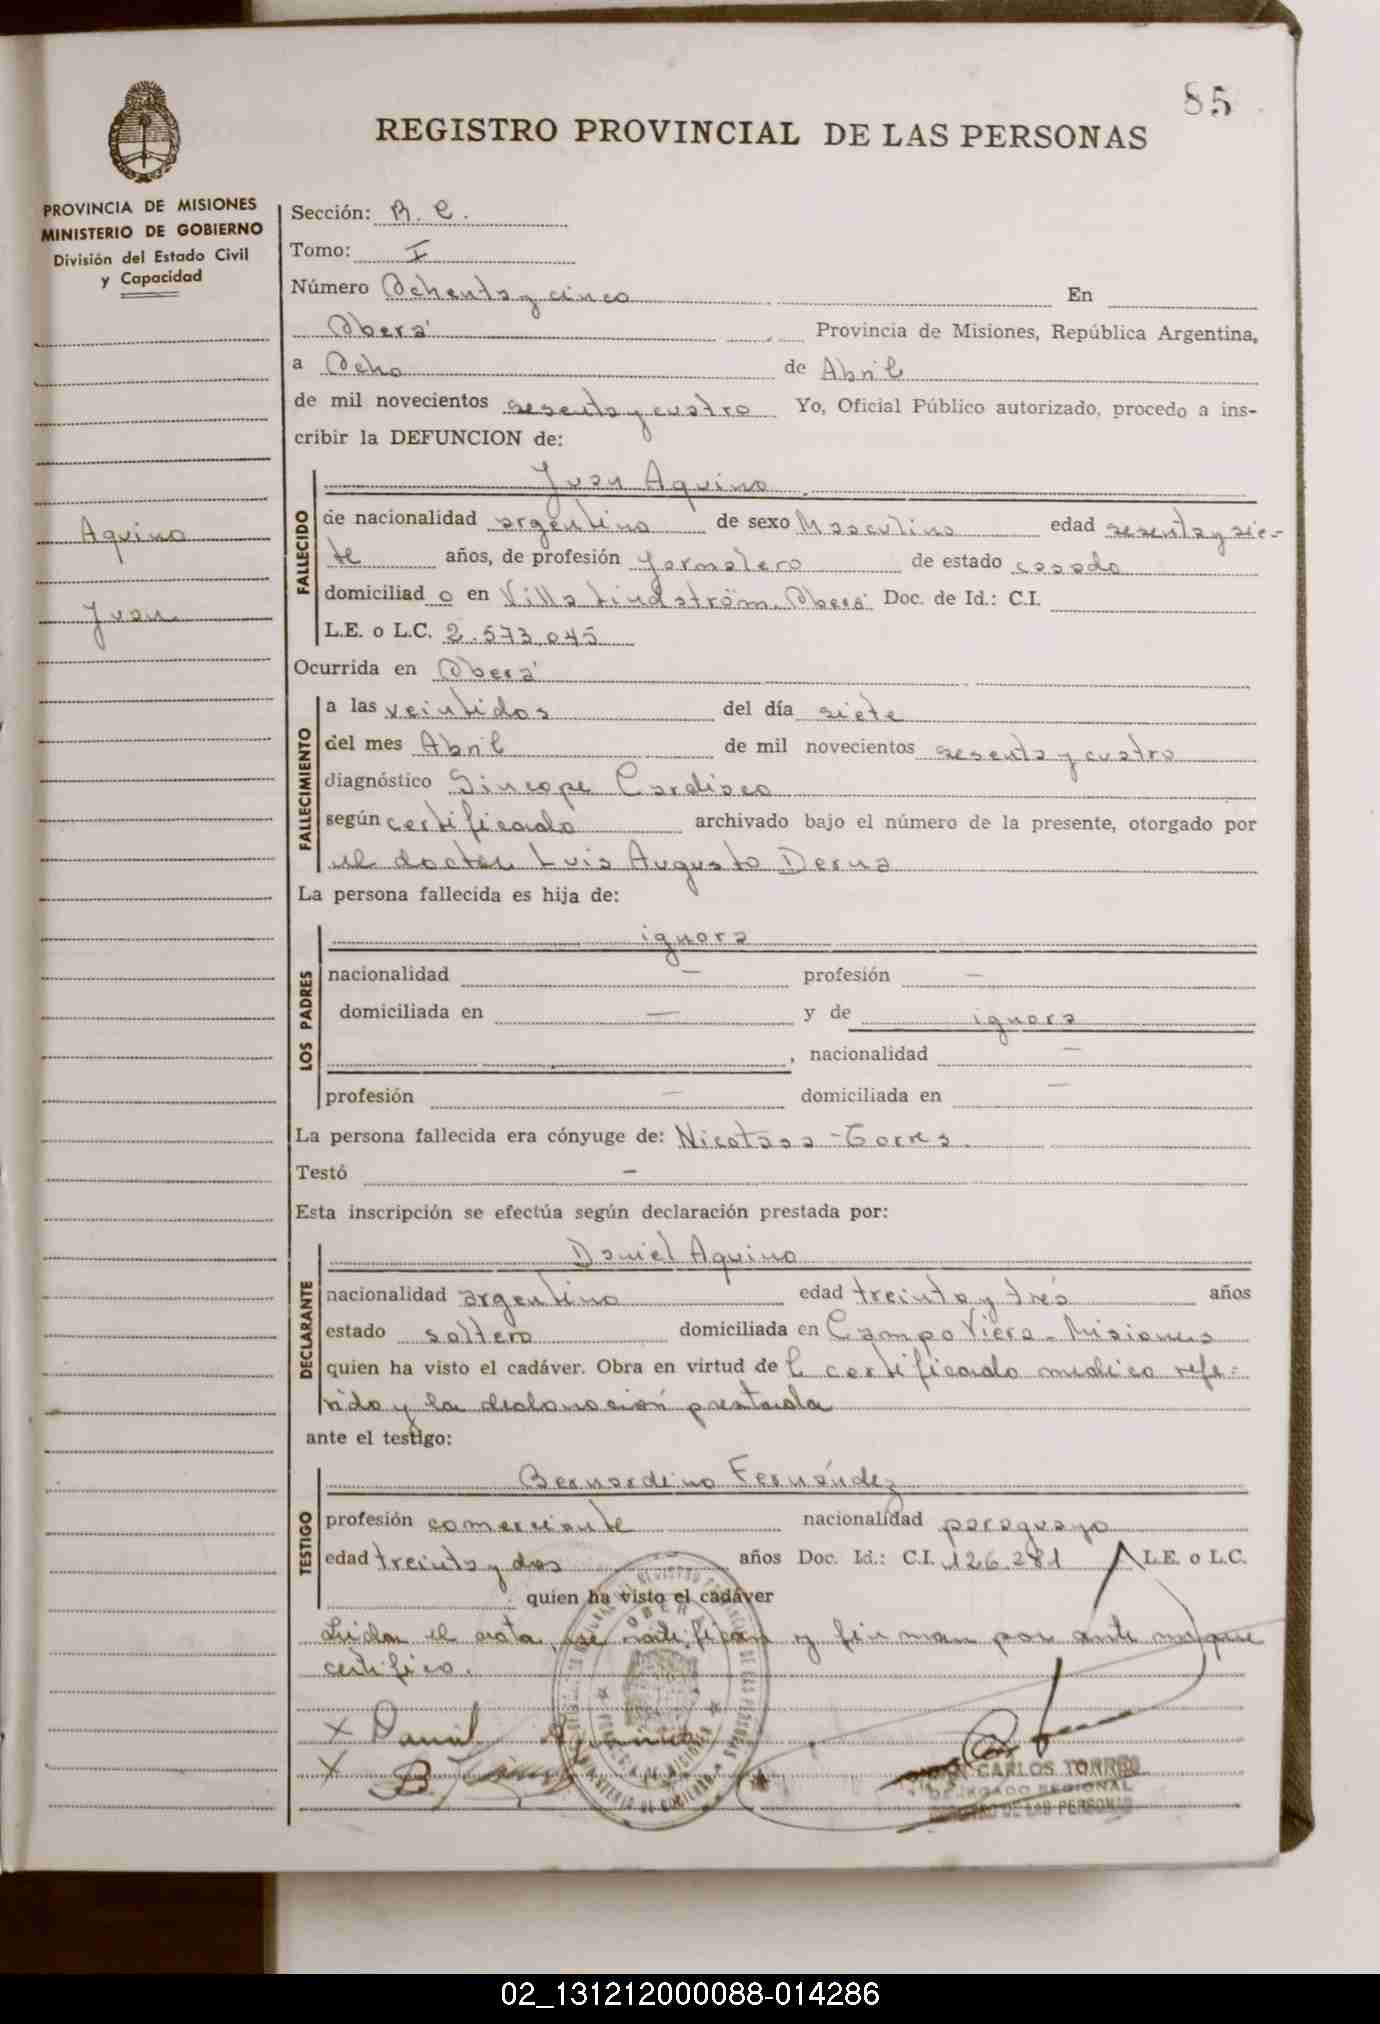 85
REGISTRO PROVINCIAL DE LAS PERSONAS
PROVINCIA DE MISIONES
MINISTERIO DE GOBIERNO
División del Estado Civil
y Capacidad
Aquino
Juan
Sección: R. C.
Tomo: I
Número Ochenta y cinco En
Oberá Provincia de Misiones, República Argentina,
a Ocho de Abril
de mil novecientos sesenta y cuatro Yo, Oficial Público autorizado, procedo a ins-
cribir la DEFUNCION de:
FALLECIDO
Juan Aquino
de nacionalidad argentino de sexo Masculino edad sesenta y sie-
te años, de profesión Jornalero de estado casado
domiciliad o en Villa Lindström. Oberá Doc. de Id.: C.I.
L.E. o L.C. 2.573.045
Ocurrida en Oberá
FALLECIMIENTO
a las veintidos del día siete
del mes Abril de mil novecientos sesenta y cuatro
diagnóstico Síncope Cardíaco
según certificado archivado bajo el número de la presente, otorgado por
el doctor Luis Augusto Derna
La persona fallecida es hija de:
LOS PADRES
ignora
nacionalidad — profesión —
domiciliada en — y de ignora
, nacionalidad —
profesión — domiciliada en —
La persona fallecida era cónyuge de: Nicolasa Torres.
Testó —
Esta inscripción se efectúa según declaración prestada por:
DECLARANTE
Daniel Aquino
nacionalidad argentino edad treinta y trés años
estado soltero domiciliada en Campo Viera - Misiones
quien ha visto el cadáver. Obra en virtud de l certificado medico refe-
rido y la declaración prestada
ante el testigo:
TESTIGO
Bernardino Fernández
profesión comerciante nacionalidad paraguayo
edad treinta y dos años Doc. Id.: C.I. 126.281 L.E. o L.C.
quien ha visto el cadáver
Leida el acta, se ratifican y firman por ante mi que
certifico.
X Daniel Aquino
X B.
OBERA
CARLOS TORRES
DELEGADO REGIONAL
REGISTRO DE LAS PERSONAS
02_131212000088-014286